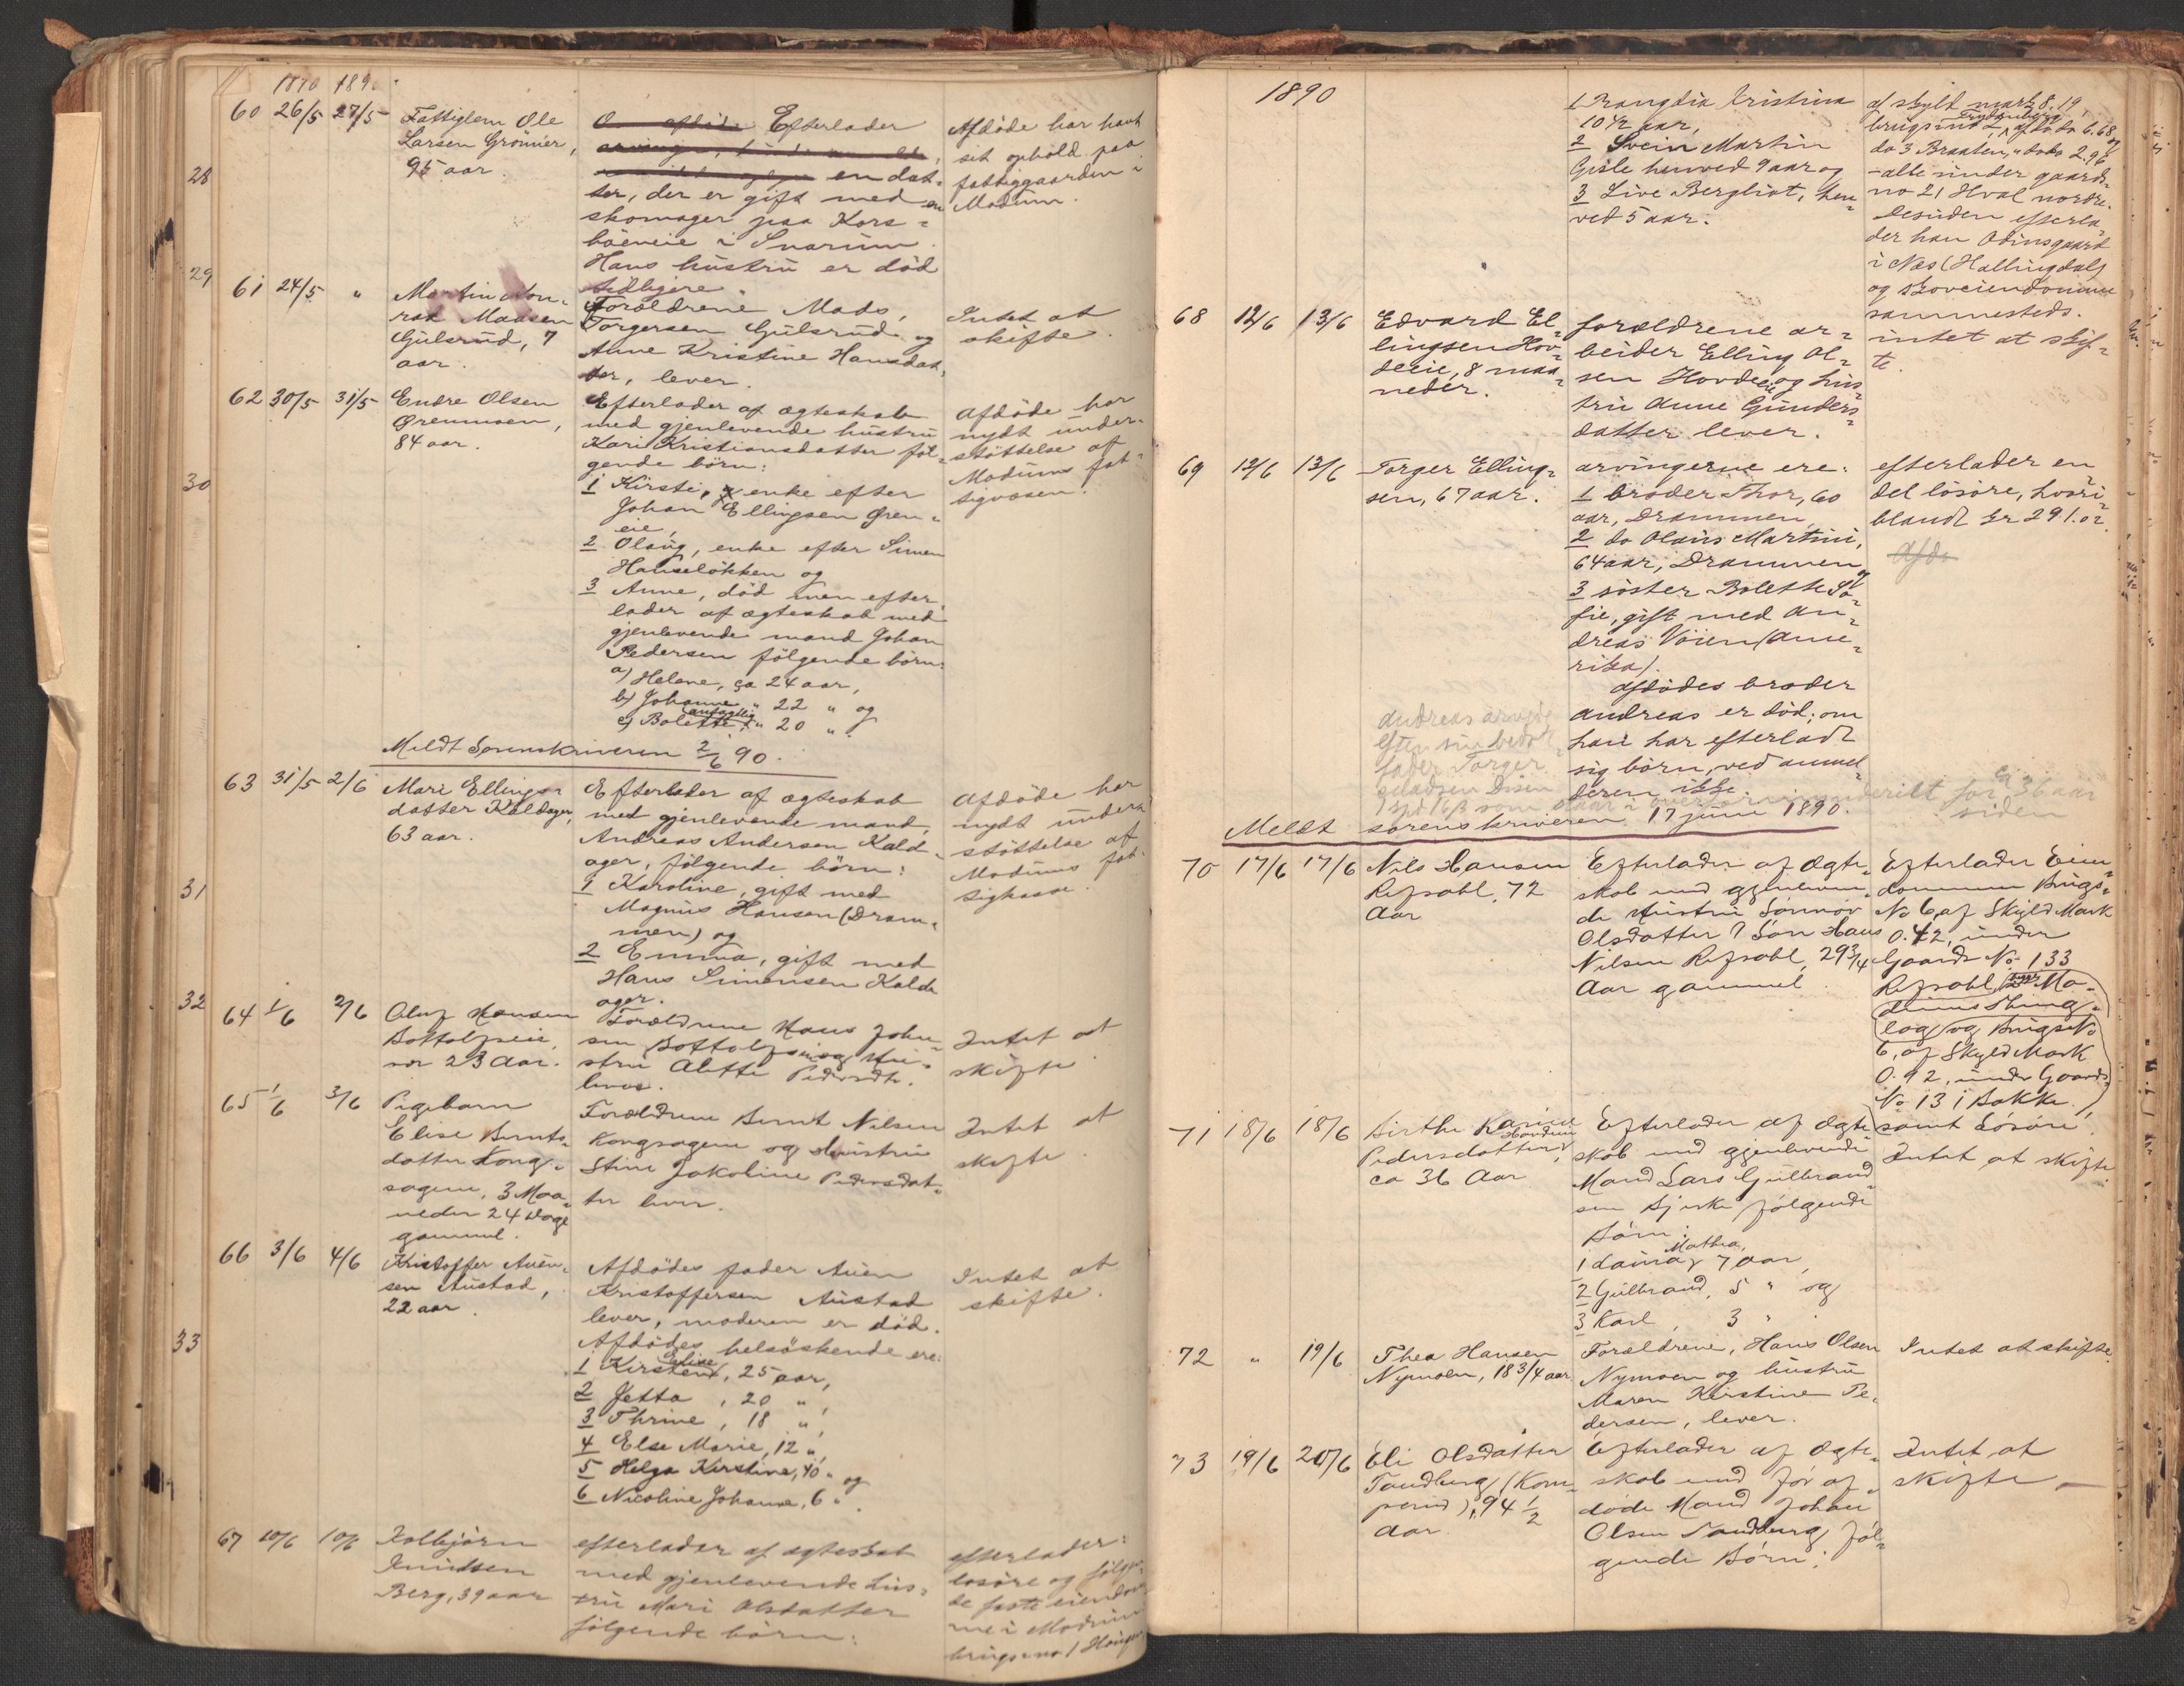 1890 189
60 26/5 27/5 Fattiglem Ole
Larsen Grönner,
95 aar.
Efterlader
en dat-
ter, der er gift med en
skomager paa Kors-
böeneie i Snarum.
Hans hustru er död
tidligere.
Afdöde har havt
sit ophold paa
fattiggaarden i
Modum.
28
29
61 24/5 " Martin
Madsen
Gulsrud, 7
aar.
Forældrene Mads
Torgersen Gulsrud og
Anne Kristine Hansdat-
ter, lever.
Intet at
skifte.
62 30/5 31/5 Endre Olsen
Grenmoen,
84 aar.
Efterlader af ægteskab
med gjenlevende hustru
Kari Kristiansdatter föl-
gende börn:
1 Kirsti, enke efter
Johan Ellingsen Gren-
eie,
2 Olaug, enke efter Simen
Hanseløkken og
3 Anne, död men efter-
lader af ægteskab med
gjenlevende mand Johan
Pedersen fölgende börn:
a) Helene, ca 24 aar,
b) Johanne, " 22 " og
c) Bolette " 20 ".
afdöde har
nydt under-
stöttelse af
Modums fat-
tigvæsen.
30
Meldt Sorenskriveren 2/6 90.
63 31/5 2/6 Mari Ellings-
datter Kaldager,
63 aar.
Efterlader af ægteskab
med gjenlevende mand,
Andreas Andersen Kald-
ager, fölgende börn:
1 Karoline, gift med
Magnus Hansen (Dram-
men) og
2 Emma, gift med
Hans Simensen Kald-
ager.
afdöde har
nydt under-
stöttelse af
Modums fat-
tigkasse.
31
32
64 1/6 2/6 Oluf Hansen
Bottolfseie,
23 Aar.
Forældrene Hans John-
sen Bottolfseie og Hu-
stru Alette Pedersdtr.
lever.
Intet at
skifte
65 1/6 3/6 Pigebarn
Elise Bernts-
datter Kong-
sagene, 3 Maa-
neder 24 Dage
gammel.
Forældrene Bernt Nilsen
Kongsagene og Hustru
Stine Jakoline Pedersdat-
ter lever.
Intet at
skifte.
66 3/6 4/6 Kristoffer Auen-
sen Austad,
22 aar.
Afdödes fader Auen
Kristoffersen Austad
lever, moderen er död.
Afdödes helsöskende ere:
1 Kirsten Elise, 25 aar,
2 Jetta, 20 ",
3 Thrine, 18 ",
4 Else Marie, 12 ",
5 Helga Kirstine, 10 " og
6 Nicoline Johanne, 6 ".
Intet at
skifte.
33
67 10/6 10/6 Kolbjörn
Knudsen
Berg, 39 aar
efterlader af ægteskab
med gjenlevende hus-
tru Mari Olsdatter
fölgende börn:
efterlader:
lösöre og fölgen-
de faste eiendom-
me i Modum
brugsno 1
1890
1 Rangdia Kristina
10 1/2 aar,
2 Svein Martin
Gisle henved 9 aar og
3 Live Bergliot, hen-
ved 5 aar.
af skyld mark 8.19,
brugsno 2, Frydenberg, af do do 6.68 og
do 3 Braaten, " do do 2.96
- alle under gaards-
no 21 Hval nordre.
Desuden efterla-
der han Odinsgaard
i Næs (Hallingdal)
og skoveiendomme
sammesteds.
68 12/6 13/6 Edvard El-
lingsen Hov-
deeie, 8 maa-
neder.
forældrene ar-
beider Elling Ol-
sen Hovdeeie og hus-
tru Anne Gunders-
datter lever.
intet at skif-
te.
69 12/6 13/6 Torger Elling-
sen, 67 aar.
arvingerne ere:
1 broder Thor, 60
aar, Drammen,
2 do Olaus Martin,
64 aar, Drammen og
3 söster Bolette So-
fie, gift med An-
dreas Vöien (Ame-
rika).
Afdödes broder
Andreas er död; om
han har efterladt
sig börn, ved anmel-
deren ikke.
efterlader en
del lösöre, hvori-
blandt kr 291.02
Afdö
Andreas
efter sin
fader Torger
36 aar
siden
Meldt sorenskriveren 17 juni 1890.
70 17/6 17/6 Nils Hansen
Refsahl, 72
Aar
Efterlader af Ægte-
skab med gjenleven-
de Hustru Sønnøv
Olsdatter 1 Søn Hans
Nilsen Refsahl, 29 3/4
Aar gammel.
Efterlader Eien-
dommen Brugs-
No 6, af Skyld Mark
0.42, under
Gaards No 133
Refsahl, Mo-
dums Thing-
lag, og BrugsNo
6, af Skyld Mark
0.92, under Gaards
No 13 i Bakke,
samt Løsøre.
71 18/6 18/6 Birthe Karine
Pedersdatter
ca 36 Aar
Efterlader af Ægte-
skab med gjenlevende
Mand Lars Gulbrand-
sen Bjerke følgende
Børn:
1 Laura Mathea, 7 aar,
2 Gulbrand, 5 " og
3 Karl, 3 ".
Intet at skifte.
72 " 19/6 Thea Hansen
Nymoen, 18 3/4 aar
Forældrene, Hans Olsen
Nymoen og hustru
Maren Kirstine Pe-
dersen, lever.
Intet at skifte.
73 19/6 20/6 Eli Olsdatter
Tandberg (Kom-
perud), 94 1/2
Aar.
Efterlader af Ægte-
skab med før af-
døde Mand Johan
Olsen Tandberg føl-
gende Børn:
Intet at
skifte